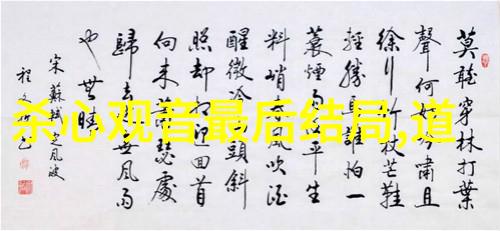 杀心观音最后结局,道
莫聽穿林打葉
聲何嘯且
徐行竹杖芒鞋
輕勝馬誰怕一
蓑煙雨平生
料峭風吹酒
醒微冷頭斜
照却相迎回首
向来蕭瑟處
歸去無風雨
也無晴
宋蘇軾風波